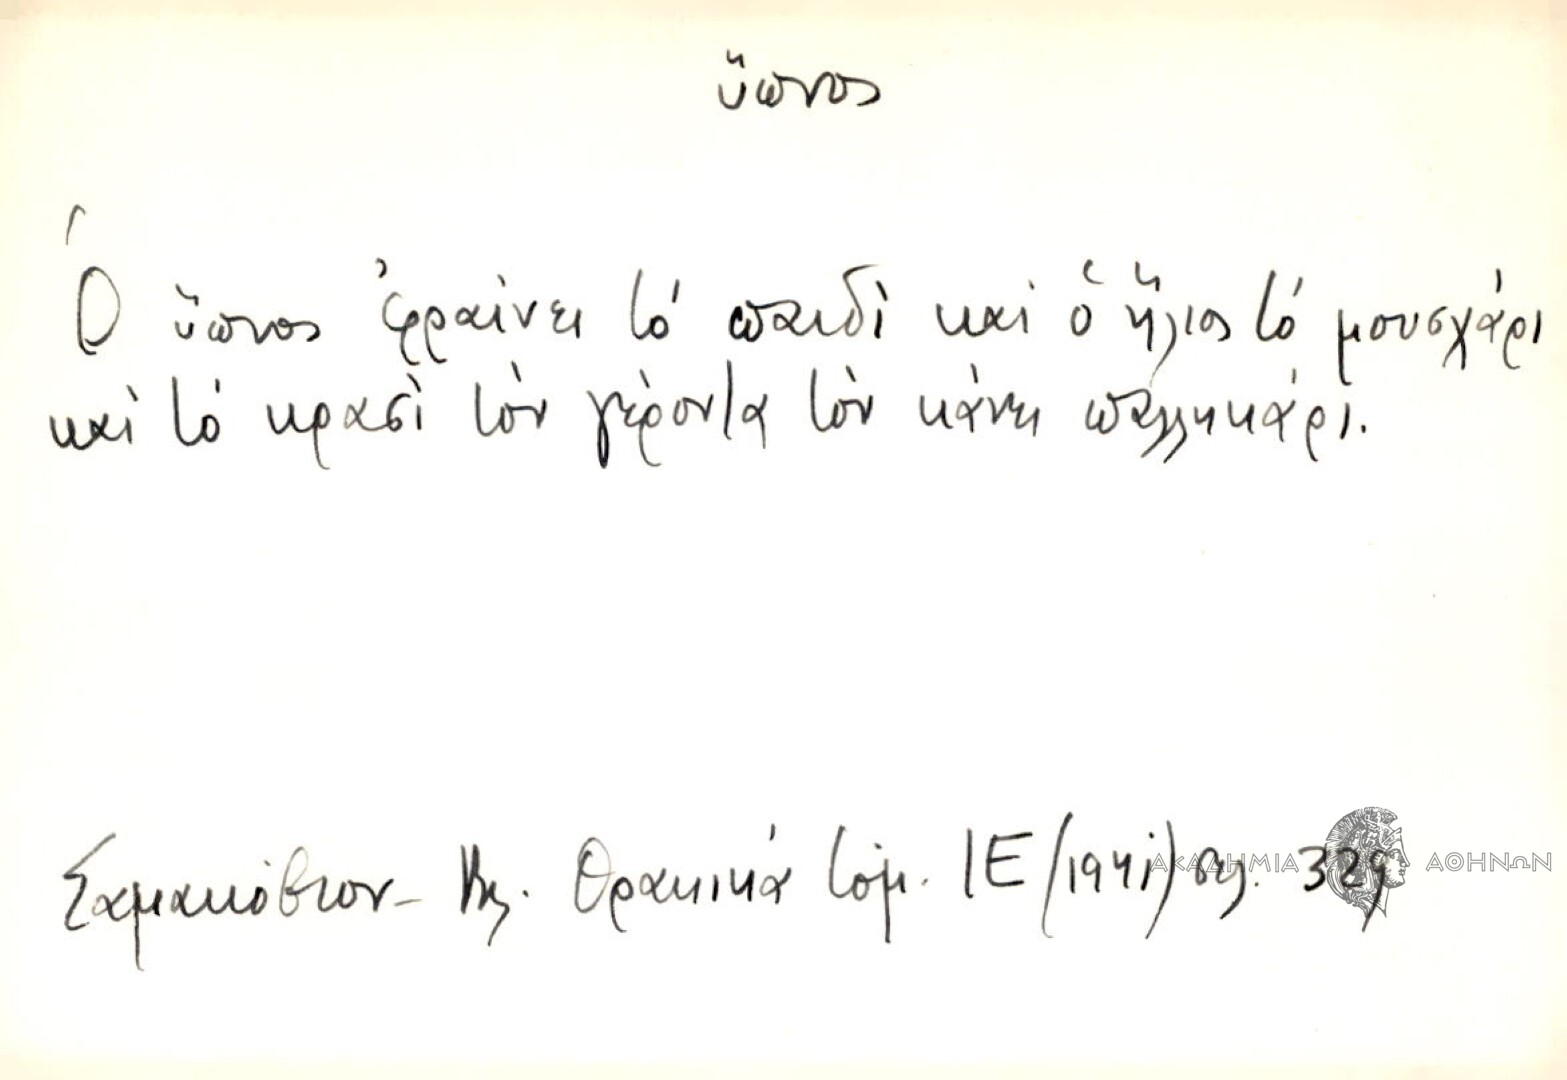 ὕπνος
Ὁ ὕπνος 'φραίνει τό παιδὶ καὶ ὁ ἥλιος τό μουσχάρι
καὶ τό κρασὶ τὸν γέροντα τὸν κάνει παλληκάρι.
Σαμακόβιον - Θρακικά τόμ. ΙΕ (1941) σελ. 329
ΑΚΑΔΗΜΙΑ ΑΘΗΝΩΝ